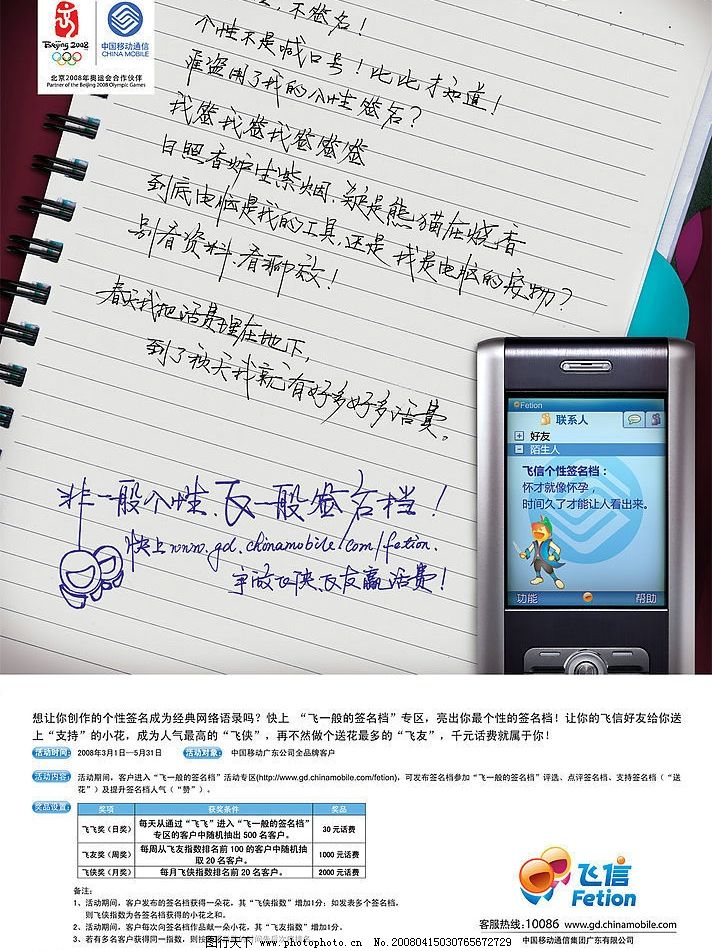 不签名！
个性不是喊口号！比比才知道！
谁盗用了我的个性签名？
我签我签我签签签
日照香炉生紫烟，疑是熊猫在烧香
到底电脑是我的工具，还是我是电脑的宠物？
别看资料，看聊效！
春天我把话费埋在地下，
到了秋天我就有好多好多话费。
非一般个性、飞一般签名档！
快上www.gd.chinamobile.com/fetion.
争做飞侠、飞友赢话费！
Beijing 2008
中国移动通信
CHINA MOBILE
北京2008年奥运会合作伙伴
Partner of the Beijing 2008 Olympic Games
Fetion
联系人
好友
陌生人
飞信个性签名档：
怀才就像怀孕，
时间久了才能让人看出来。
功能
帮助
想让你创作的个性签名成为经典网络语录吗？快上 “飞一般的签名档”专区，亮出你最个性的签名档！让你的飞信好友给你送
上“支持”的小花，成为人气最高的“飞侠”，再不然做个送花最多的“飞友”，千元话费就属于你！
活动时间： 2008年3月1日—5月31日 活动对象： 中国移动广东公司全品牌客户
活动内容： 活动期间，客户进入“飞一般的签名档”活动专区(http://www.gd.chinamobile.com/fetion)，可发布签名档参加“飞一般的签名档”评选、点评签名档、支持签名档（“送
花”）及提升签名档人气（“赞”）。
奖品设置：
奖项 获奖条件 奖品
飞飞奖（日奖） 每天从通过“飞飞”进入“飞一般的签名档”
专区的客户中随机抽出 500 名客户。 30 元话费
飞友奖（周奖） 每周从飞友指数排名前 100 的客户中随机抽
取 20 名客户。 1000 元话费
飞侠奖（月奖） 每月飞侠指数排名前 20 名客户。 2000 元话费
备注：
1、活动期间，客户发布的签名档获得一朵花，其“飞侠指数”增加1分；如发表多个签名档，
则飞侠指数为各签名档获得的小花之和。
2、活动期间，客户每次向签名档作品献一朵小花，其“飞友指数”增加1分。
3、若有多名客户获得同一指数，则按
飞信
Fetion
客服热线：10086 www.gd.chinamobile.com
中国移动通信集团广东有限公司
图行天下 PHOTOPHOTO.CN No.20080415030765672729